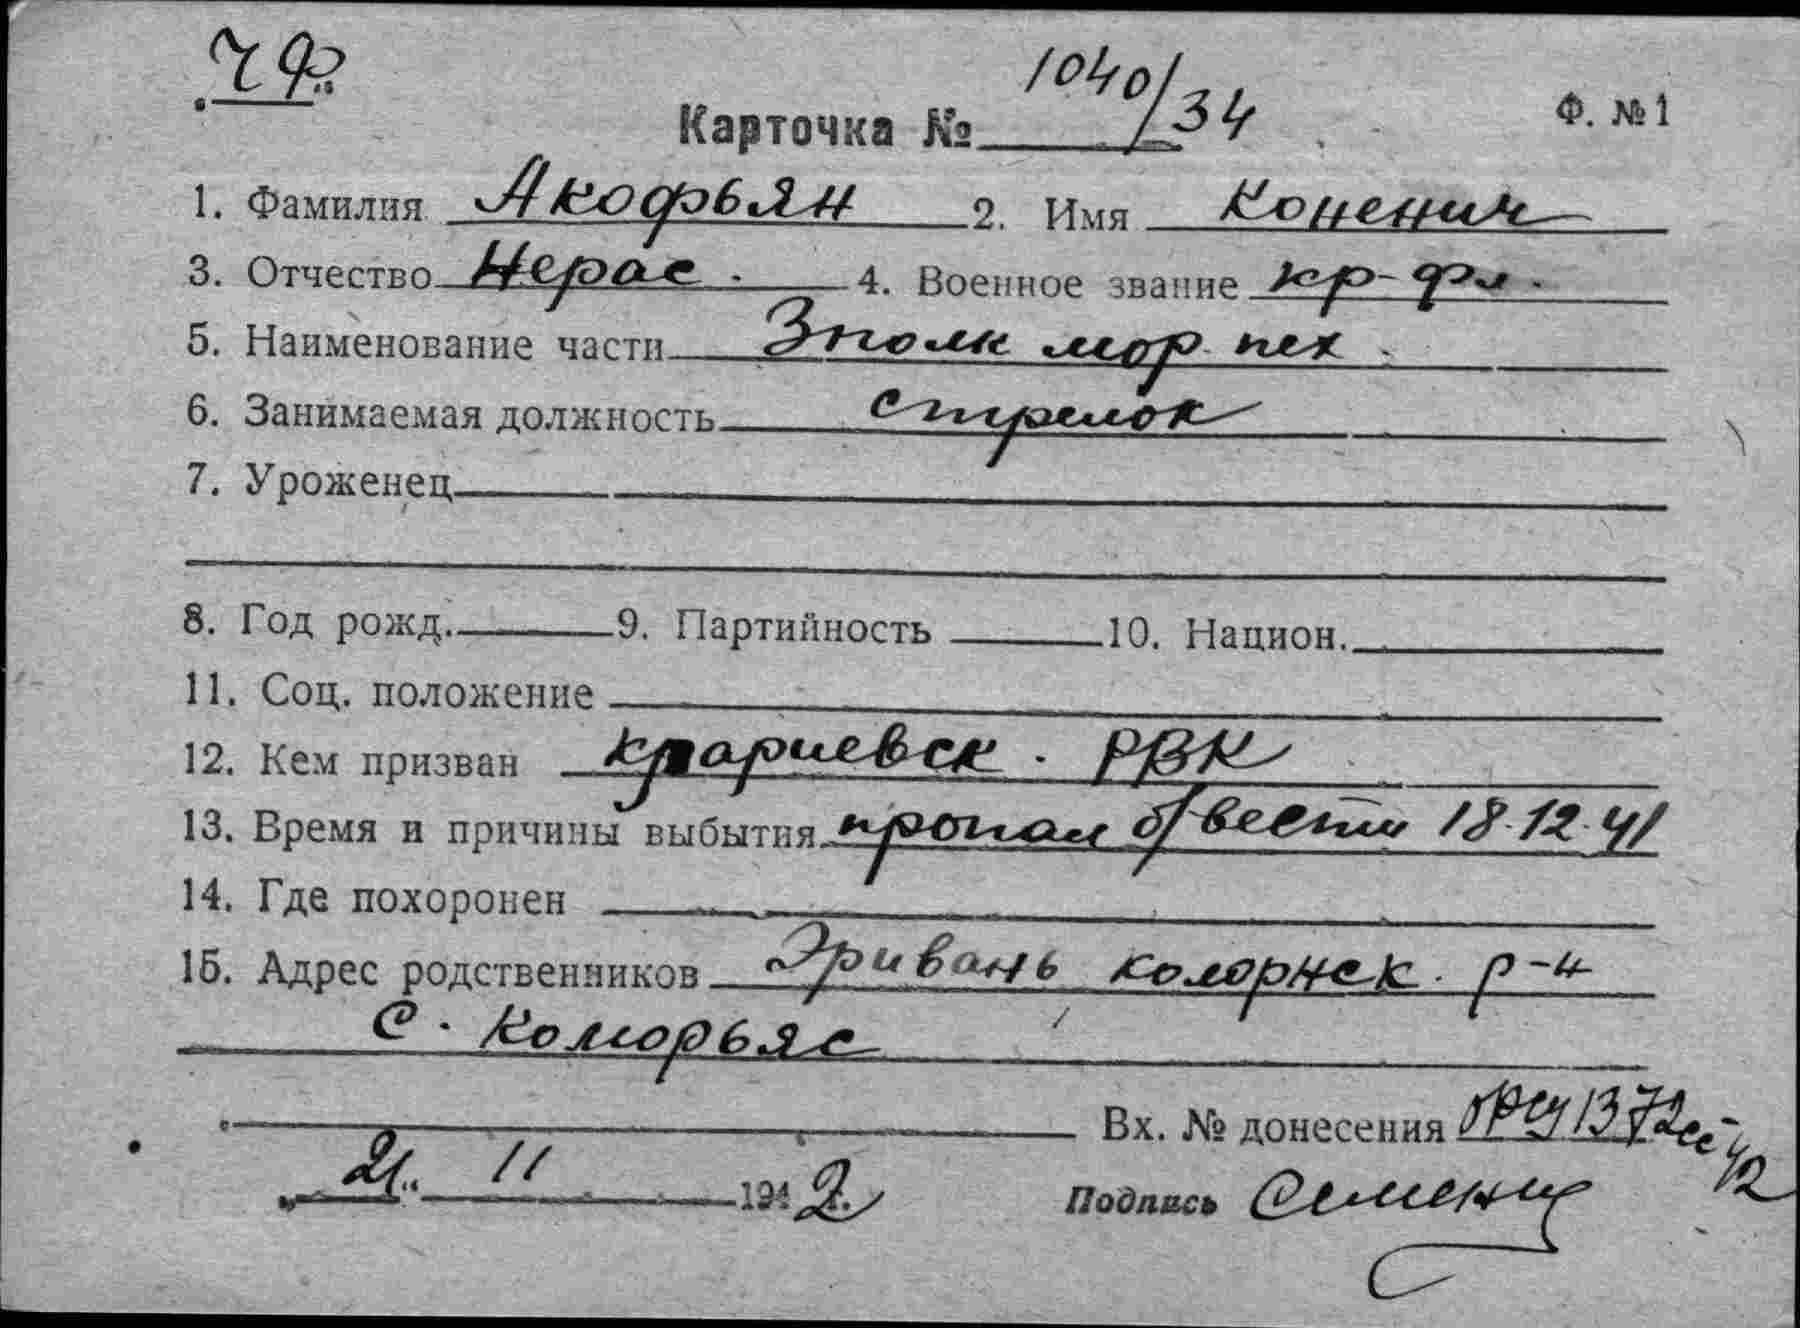 ЧФ
Карточка № 1040/34 Ф. № 1
1. Фамилия Акофьян 2. Имя Коненич
3. Отчество Нерас. 4. Военное звание кр-фл.
5. Наименование части 3 полк мор. пех.
6. Занимаемая должность стрелок
7. Уроженец
8. Год рожд. 9. Партийность 10. Национ.
11. Соц. положение
12. Кем призван РВК
13. Время и причины выбытия пропал б/вести 18.12.41
14. Где похоронен
15. Адрес родственников Эривань р-н
с. Коморьяс
Вх. № донесения 1372сс-42
„21“ 11 1942.
Подпись